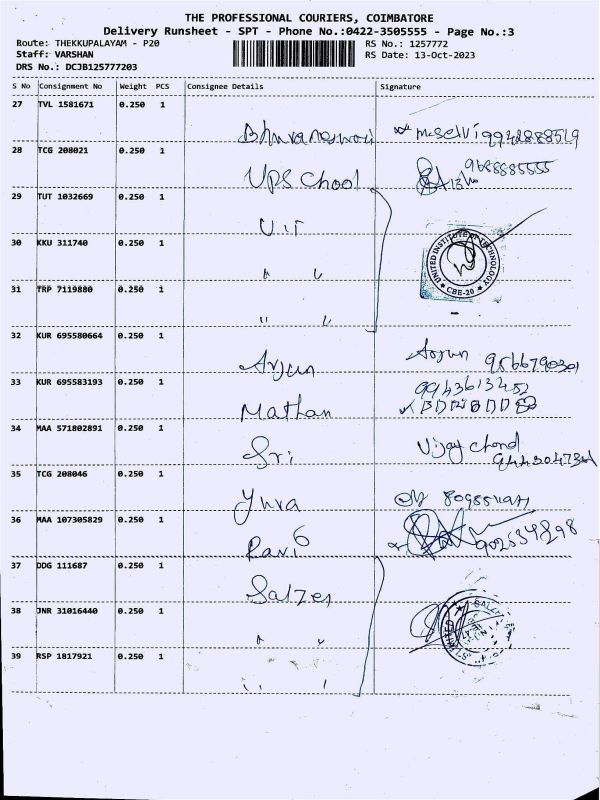 THE PROFESSIONAL COURIERS, COIMBATORE
Delivery Runsheet - SPT - Phone No.:0422-3505555 - Page No.:3
Route: THEKKUPALAYAM - P20
RS No.: 1257772
Staff: VARSHAN
RS Date: 13-Oct-2023
DRS No.: DCJB125777203
S No Consignment No Weight PCS Consignee Details Signature
27 TVL 1581671 0.250 1
28 TCG 208021 0.250 1 UPS School 9688885555
29 TUT 1032669 0.250 1 UIT
30 KKU 311740 0.250 1 " "
UNITED INSTITUTE OF TECHNOLOGY
★ CBE-20 ★
31 TRP 7119880 0.250 1 " "
32 KUR 695580664 0.250 1 Arjun Arjun
33 KUR 695583193 0.250 1 Mathan
34 MAA 571802891 0.250 1 Sri Vijay Chand
35 TCG 208046 0.250 1 Yuva
36 MAA 107305829 0.250 1 Ravi
37 DDG 111687 0.250 1 Salzer
38 JNR 31016440 0.250 1 " "
39 RSP 1817921 0.250 1 " "